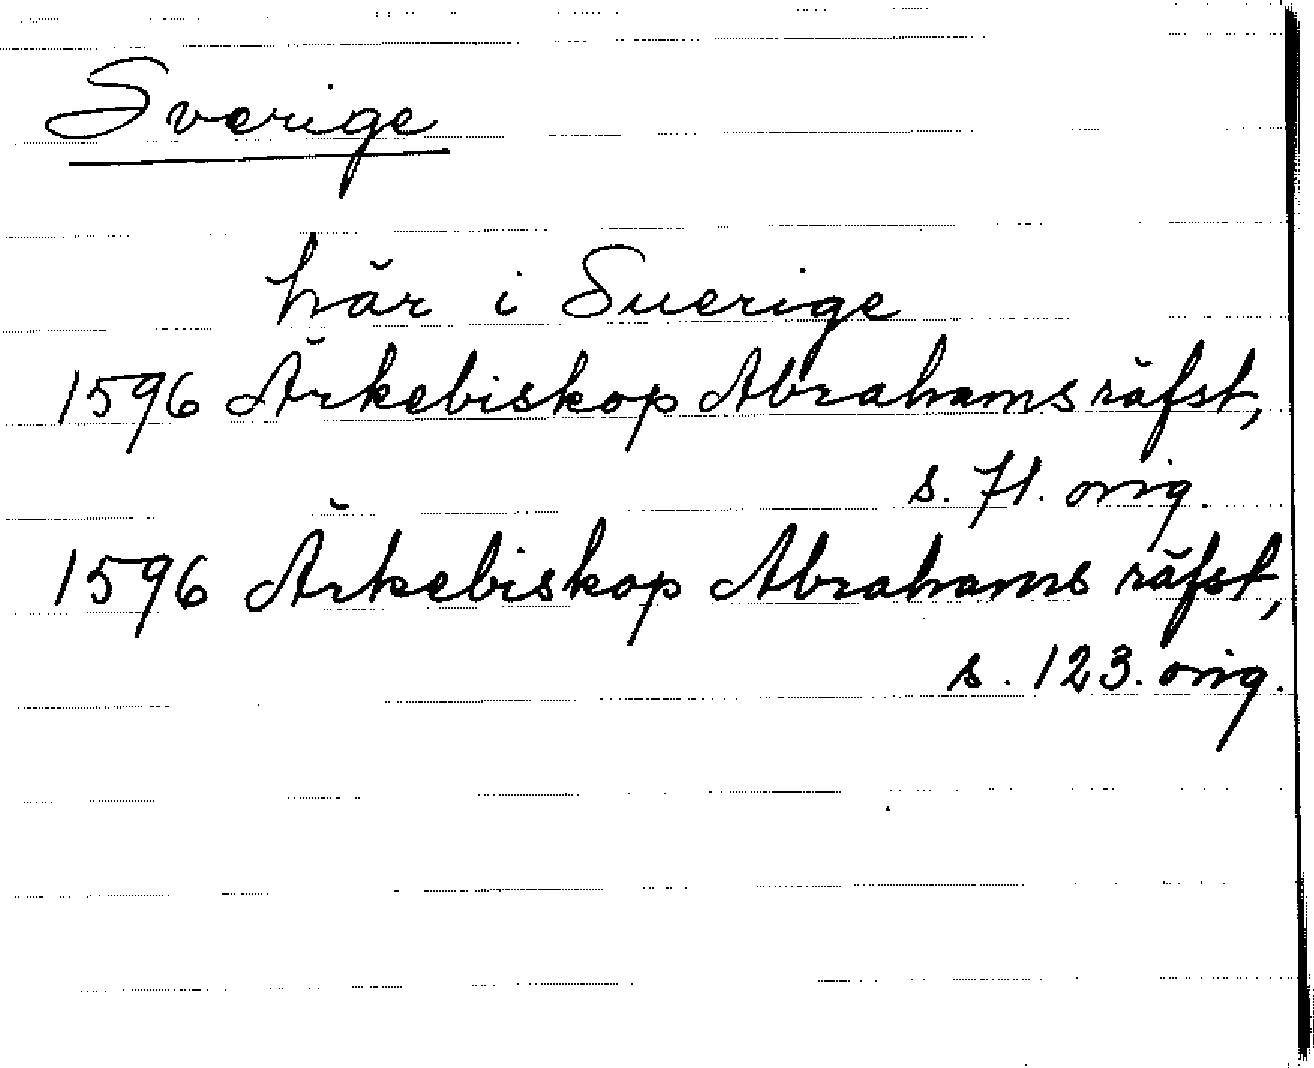 Sverige
här i Suerige
1596 Ärkebiskop Abrahams räfst,
s. 71. orig.
1596 Ärkebiskop Abrahams räfst,
s. 123. orig.